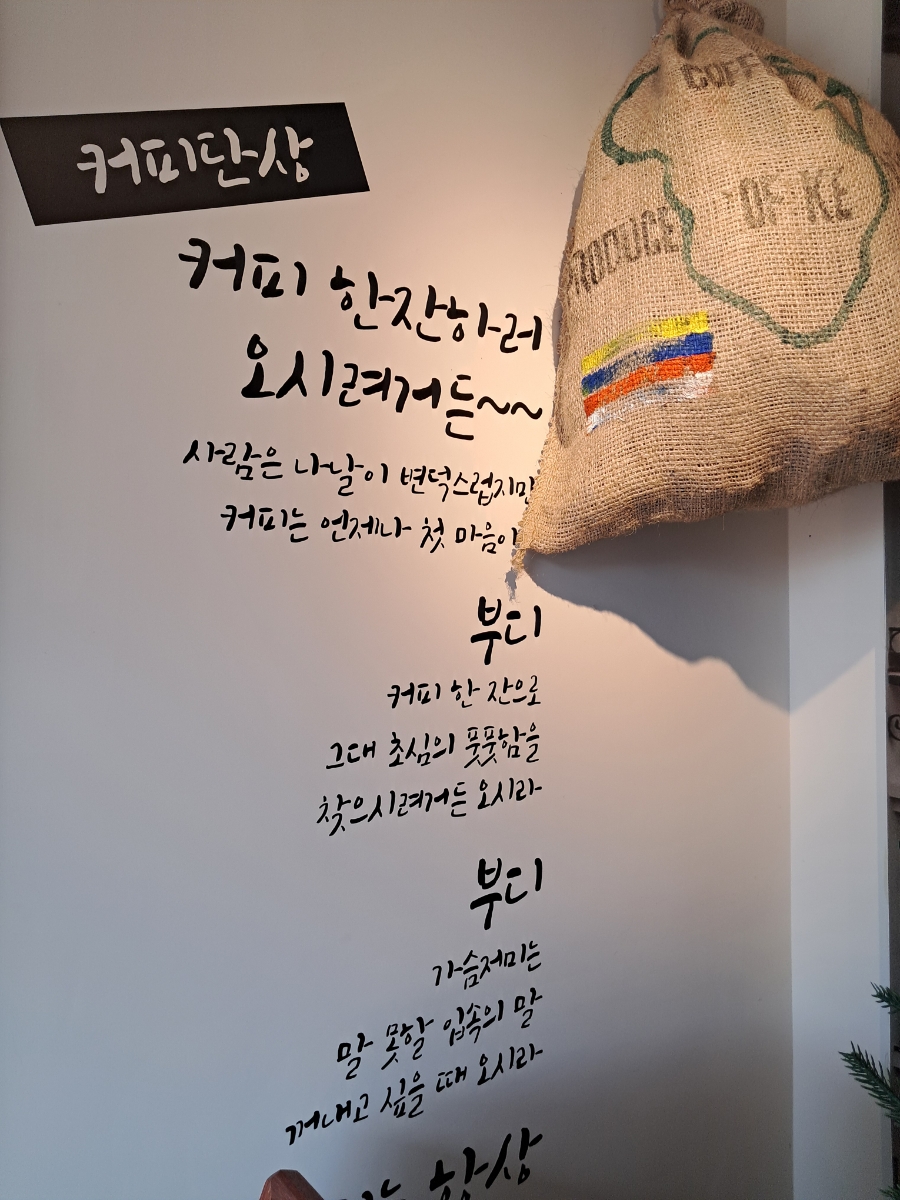 커피단상
커피 한잔하러
오시려거든~~
사람은 나날이 변덕스럽지만
커피는 언제나 첫 마음이
부디
커피 한 잔으로
그대 초심의 풋풋함을
찾으시려거든 오시라
부디
가슴저미는
말 못할 입속의 말
꺼내고 싶을 때 오시라
항상
COFF
PRODUCE OF KE